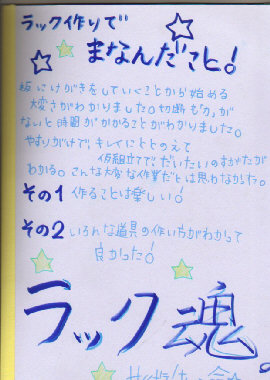 ラック作りで
まなんだこと!
板にけがきをしていくことから始める
大変さがわかりました。切断も力が
ないと時間がかかることがわかりました。
やすりがけで、キレイにととのえて
仮組立てでだいたいのすがたが
わかる。こんな大変な作業だとは思わなかった。
その1 作ることは楽しい!
その2 いろんな道具の作い方がわかって
良かった!
ラック魂。